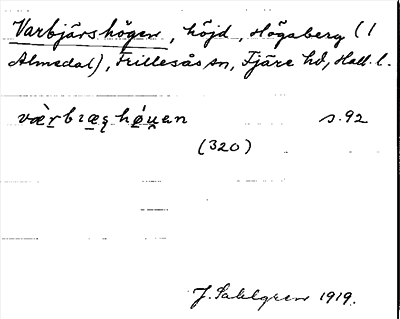 Varbjärshögen, höjd, Högaberg (1
Almedal), Frillesås sn, Fjäre hd, Hall. l.
væ̀rbıæşhø̀u̯ən s. 92
(320)
J. Sahlgren 1919.